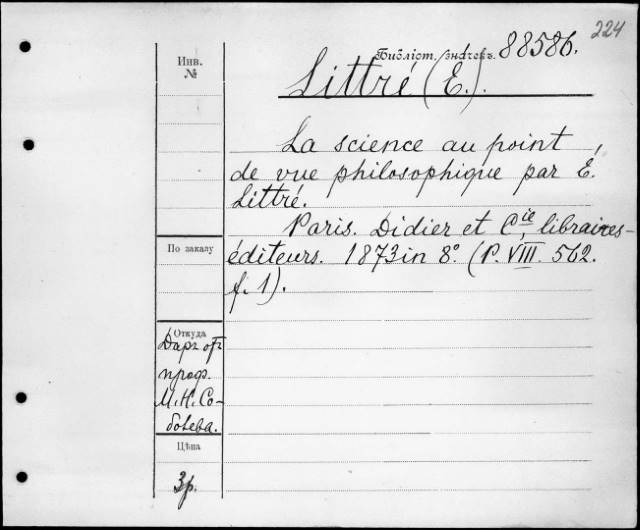 224
Инв. №
Библіот. значекъ. 88586.
Littré (E.).
La science au point
de vue philosophique par É.
Littré.
Paris. Didier et Cie, libraires-
éditeurs. 1873 in 8°. (P. VIII. 562.
f. 1).
По заказу
Откуда
Даръ отъ
проф.
М. Н. Со-
болева.
Цѣна
3р.